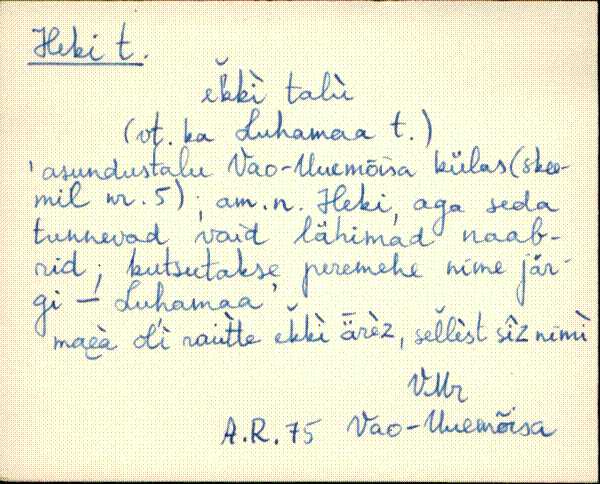 Heki t.
ek̆kì talù
(vt. ka Luhamaa t.)
'asundustalu Vao-Uuemõisa külas (skee-
mil nr. 5); am. n. Heki, aga seda
tunnevad vaid lähimad naab-
rid; kutsutakse peremehe nime jär-
gi — Luhamaa'
maeà oĺi raiùtte ek̆kì ärèz, sel̆lèst sîz nimì
VMr
A.R. 75 Vao-Uuemõisa